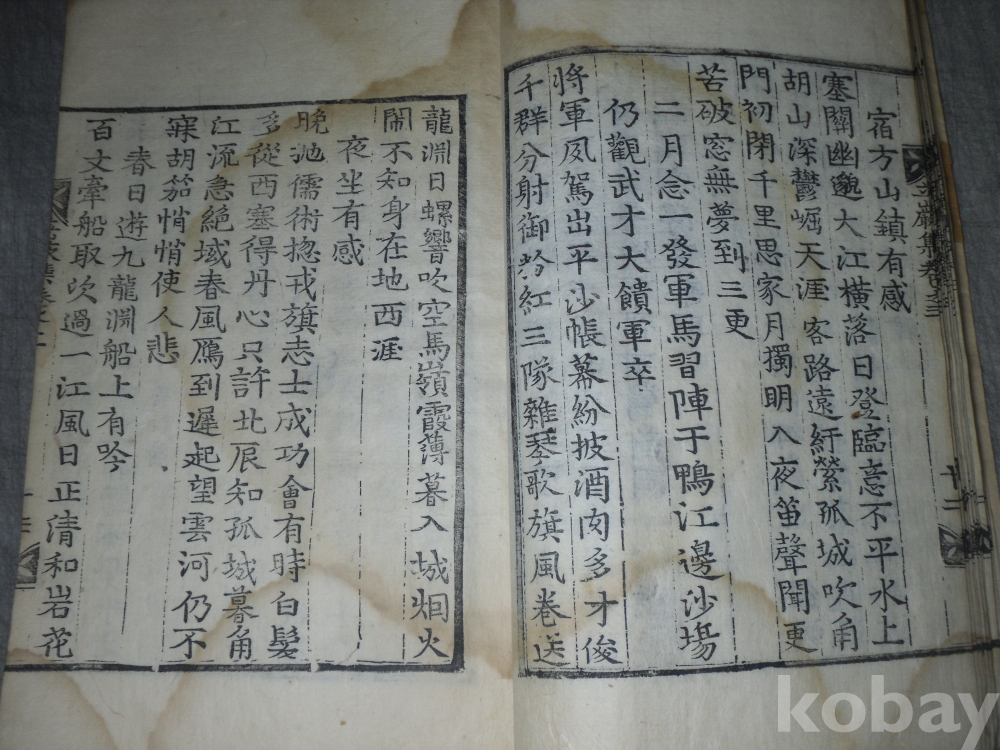 宿方山鎮有感
塞關幽邈大江橫落日登臨意不平水上
胡山深鬱崛天涯客路遠紆縈孤城吹角
門初閉千里思家月獨明入夜笛聲聞更
苦破窓無夢到三更
二月念一發軍馬習陣于鴨江邊沙塲
仍觀武才大饋軍卒
將軍夙駕出平沙帳幕紛披酒肉多才俊
千群分射御粉紅三隊雜琴歌旗風卷送
龍淵日螺響吹空馬嶺霞薄暮入城烟火
鬧不知身在地西涯
夜坐有感
晩抛儒術揔戎旗志士成功會有時白髮
多從西塞得丹心只許北辰知孤城暮角
江流急絶域春風鴈到遲起望雲河仍不
寐胡笳悄悄使人悲
春日遊九龍淵船上有吟
百丈牽船取次過一江風日正清和岩花
十二
kobay